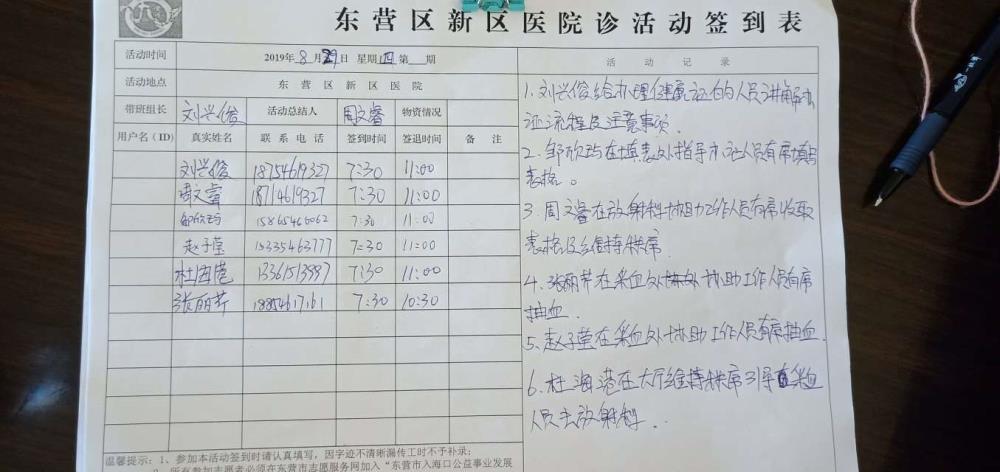 东营区新区医院诊活动签到表
活动时间 2019年8月29日 星期四 第 期 活动记录
活动地点 东营区新区医院
带班组长 刘兴俊 活动总结人 周文睿 物资情况
用户名(ID) 真实姓名 联系电话 签到时间 签退时间 备注
刘兴俊 18754619327 7:30 11:00
周文睿 18714619327 7:30 11:00
邹欣 15865460062 7:30 11:00
赵子莹 15335463777 7:30 11:00
杜海港 13361513997 7:30 11:00
张丽芹 18854617161 7:30 10:30
1.刘兴俊给办理健康证的人员讲解办
证流程及注意事项.
2.邹欣 在填表处指导办证人员有序填写
表格。
3.周文睿在放射科协助工作人员有序收取
表格及维持秩序
4.张丽芹在采血处协助工作人员有序
抽血.
5.赵子莹在采血处协助工作人员有序抽血.
6.杜海港在大厅维持秩序引导采血
人员去放射科.
温馨提示:1、参加本活动签到时请认真填写,因字迹不清晰漏传工时不予补录;
2、所有参加志愿者必须在东营市志愿服务网加入“东营市入海口公益事业发展